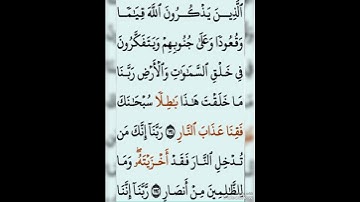 ٱلَّذِينَ يَذۡكُرُونَ ٱللَّهَ قِيَٰمٗا
وَقُعُودٗا وَعَلَىٰ جُنُوبِهِمۡ وَيَتَفَكَّرُونَ
فِي خَلۡقِ ٱلسَّمَٰوَٰتِ وَٱلۡأَرۡضِ رَبَّنَا
مَا خَلَقۡتَ هَٰذَا بَٰطِلٗا سُبۡحَٰنَكَ
فَقِنَا عَذَابَ ٱلنَّارِ ١٩١ رَبَّنَآ إِنَّكَ مَن
تُدۡخِلِ ٱلنَّارَ فَقَدۡ أَخۡزَيۡتَهُۥۖ وَمَا
لِلظَّٰلِمِينَ مِنۡ أَنصَارٖ ١٩٢ رَّبَّنَآ إِنَّنَا